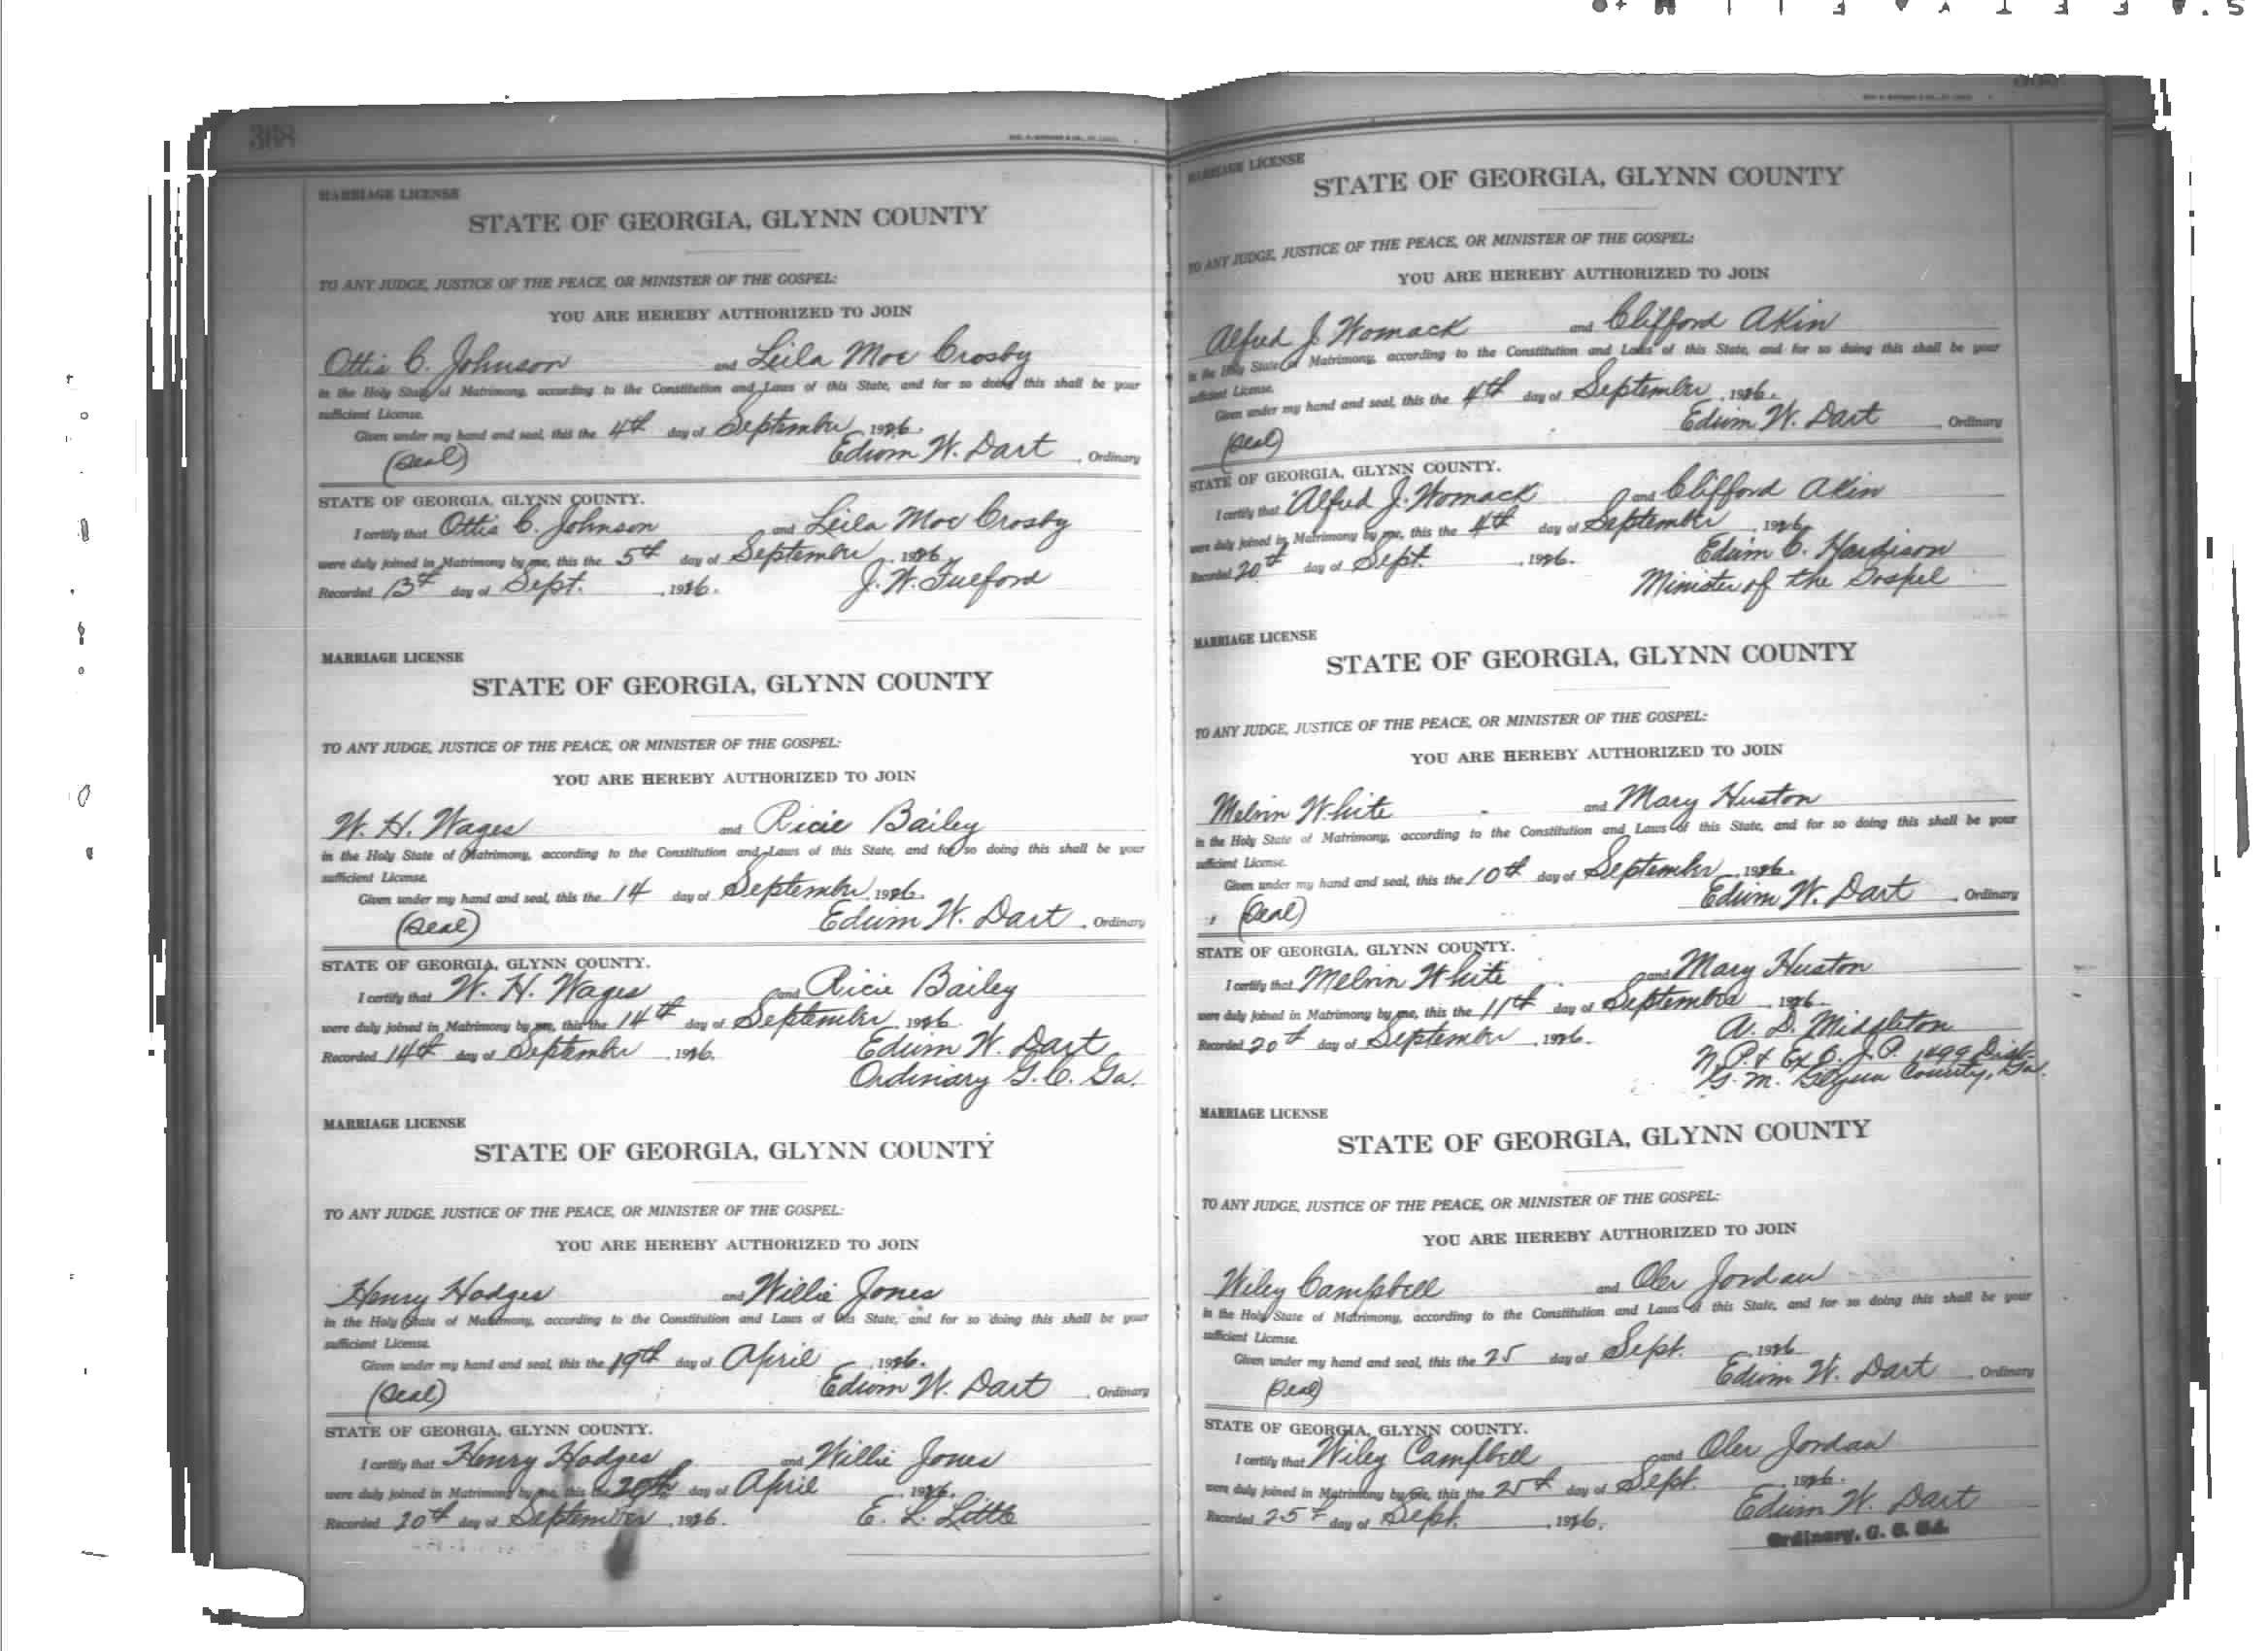 308
MARRIAGE LICENSE
STATE OF GEORGIA, GLYNN COUNTY
TO ANY JUDGE, JUSTICE OF THE PEACE, OR MINISTER OF THE GOSPEL:
YOU ARE HEREBY AUTHORIZED TO JOIN
Ottis C. Johnson and Leila Mae Crosby
in the Holy State of Matrimony, according to the Constitution and Laws of this State, and for so doing this shall be your
sufficient License.
Given under my hand and seal, this the 4th day of September, 1926.
(Seal) Edwin W. Dart, Ordinary
STATE OF GEORGIA, GLYNN COUNTY.
I certify that Ottis C. Johnson and Leila Mae Crosby
were duly joined in Matrimony by me, this the 5th day of September, 1926
Recorded 13th day of Sept., 1926. J. W. Fulford
MARRIAGE LICENSE
STATE OF GEORGIA, GLYNN COUNTY
TO ANY JUDGE, JUSTICE OF THE PEACE, OR MINISTER OF THE GOSPEL:
YOU ARE HEREBY AUTHORIZED TO JOIN
W. H. Wages and Ricie Bailey
in the Holy State of Matrimony, according to the Constitution and Laws of this State, and for so doing this shall be your
sufficient License.
Given under my hand and seal, this the 14 day of September, 1926.
(Seal) Edwin W. Dart, Ordinary
STATE OF GEORGIA, GLYNN COUNTY.
I certify that W. H. Wages and Ricie Bailey
were duly joined in Matrimony by me, this the 14th day of September, 1926.
Recorded 14th day of September, 1926. Edwin W. Dart
Ordinary G. C. Ga.
MARRIAGE LICENSE
STATE OF GEORGIA, GLYNN COUNTY
TO ANY JUDGE, JUSTICE OF THE PEACE, OR MINISTER OF THE GOSPEL:
YOU ARE HEREBY AUTHORIZED TO JOIN
Henry Hodges and Willie Jones
in the Holy State of Matrimony, according to the Constitution and Laws of this State, and for so doing this shall be your
sufficient License.
Given under my hand and seal, this the 19th day of April, 1926.
(Seal) Edwin W. Dart, Ordinary
STATE OF GEORGIA, GLYNN COUNTY.
I certify that Henry Hodges and Willie Jones
were duly joined in Matrimony by me, this the 20th day of April, 1926.
Recorded 20th day of September, 1926. E. L. Little
MARRIAGE LICENSE
STATE OF GEORGIA, GLYNN COUNTY
TO ANY JUDGE, JUSTICE OF THE PEACE, OR MINISTER OF THE GOSPEL:
YOU ARE HEREBY AUTHORIZED TO JOIN
Alfred J. Womack and Clifford Akin
in the Holy State of Matrimony, according to the Constitution and Laws of this State, and for so doing this shall be your
sufficient License.
Given under my hand and seal, this the 4th day of September, 1926.
(Seal) Edwin W. Dart, Ordinary
STATE OF GEORGIA, GLYNN COUNTY.
I certify that Alfred J. Womack and Clifford Akin
were duly joined in Matrimony by me, this the 4th day of September, 1926
Recorded 20th day of Sept., 1926. Edwin C. Hardison
Minister of the Gospel
MARRIAGE LICENSE
STATE OF GEORGIA, GLYNN COUNTY
TO ANY JUDGE, JUSTICE OF THE PEACE, OR MINISTER OF THE GOSPEL:
YOU ARE HEREBY AUTHORIZED TO JOIN
Melvin White and Mary Huston
in the Holy State of Matrimony, according to the Constitution and Laws of this State, and for so doing this shall be your
sufficient License.
Given under my hand and seal, this the 10th day of September, 1926.
(Seal) Edwin W. Dart, Ordinary
STATE OF GEORGIA, GLYNN COUNTY.
I certify that Melvin White and Mary Huston
were duly joined in Matrimony by me, this the 11th day of September, 1926.
Recorded 20th day of September, 1926. A. D. Middleton
N. P. & Ex O. J. P. 1499 Dist.
G. M. Glynn County, Ga.
MARRIAGE LICENSE
STATE OF GEORGIA, GLYNN COUNTY
TO ANY JUDGE, JUSTICE OF THE PEACE, OR MINISTER OF THE GOSPEL:
YOU ARE HEREBY AUTHORIZED TO JOIN
Wiley Campbell and Oler Jordan
in the Holy State of Matrimony, according to the Constitution and Laws of this State, and for so doing this shall be your
sufficient License.
Given under my hand and seal, this the 25 day of Sept., 1926
(Seal) Edwin W. Dart, Ordinary
STATE OF GEORGIA, GLYNN COUNTY.
I certify that Wiley Campbell and Oler Jordan
were duly joined in Matrimony by me, this the 25th day of Sept., 1926.
Recorded 25th day of Sept., 1926. Edwin W. Dart
Ordinary, G. C. Ga.